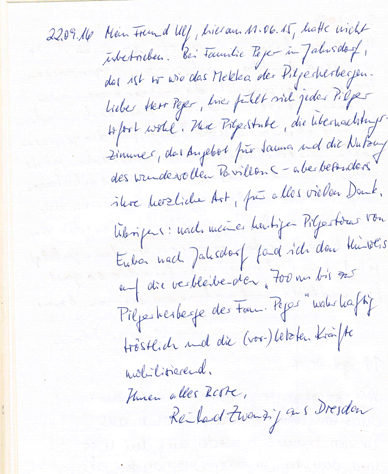 22.09.16 Mein Freund Ulf, hier am 11.06.15, hatte nicht
übertrieben. Bei Familie Peger in Jahnsdorf,
das ist so wie das Mekka der Pilgerherbergen.
Lieber Herr Peger, hier fühlt sich jeder Pilger
sofort wohl. Ihre Pilgerstube, die Übernachtungs-
zimmer, das Angebot für Sauna und die Nutzung
des wundervollen Pavillons – aber besonders
ihre herzliche Art, für alles vielen Dank.
Übrigens: nach meiner heutigen Pilgertour von
Euba nach Jahsdorf fand ich den Hinweis
auf die verbleibenden „700 m bis zur
Pilgerherberge der Fam. Peger" wahrhaftig
tröstlich und die (vor-) letzten Kräfte
mobilisierend.
Ihnen alles Beste,
Reinhard Zwanzig aus Dresden